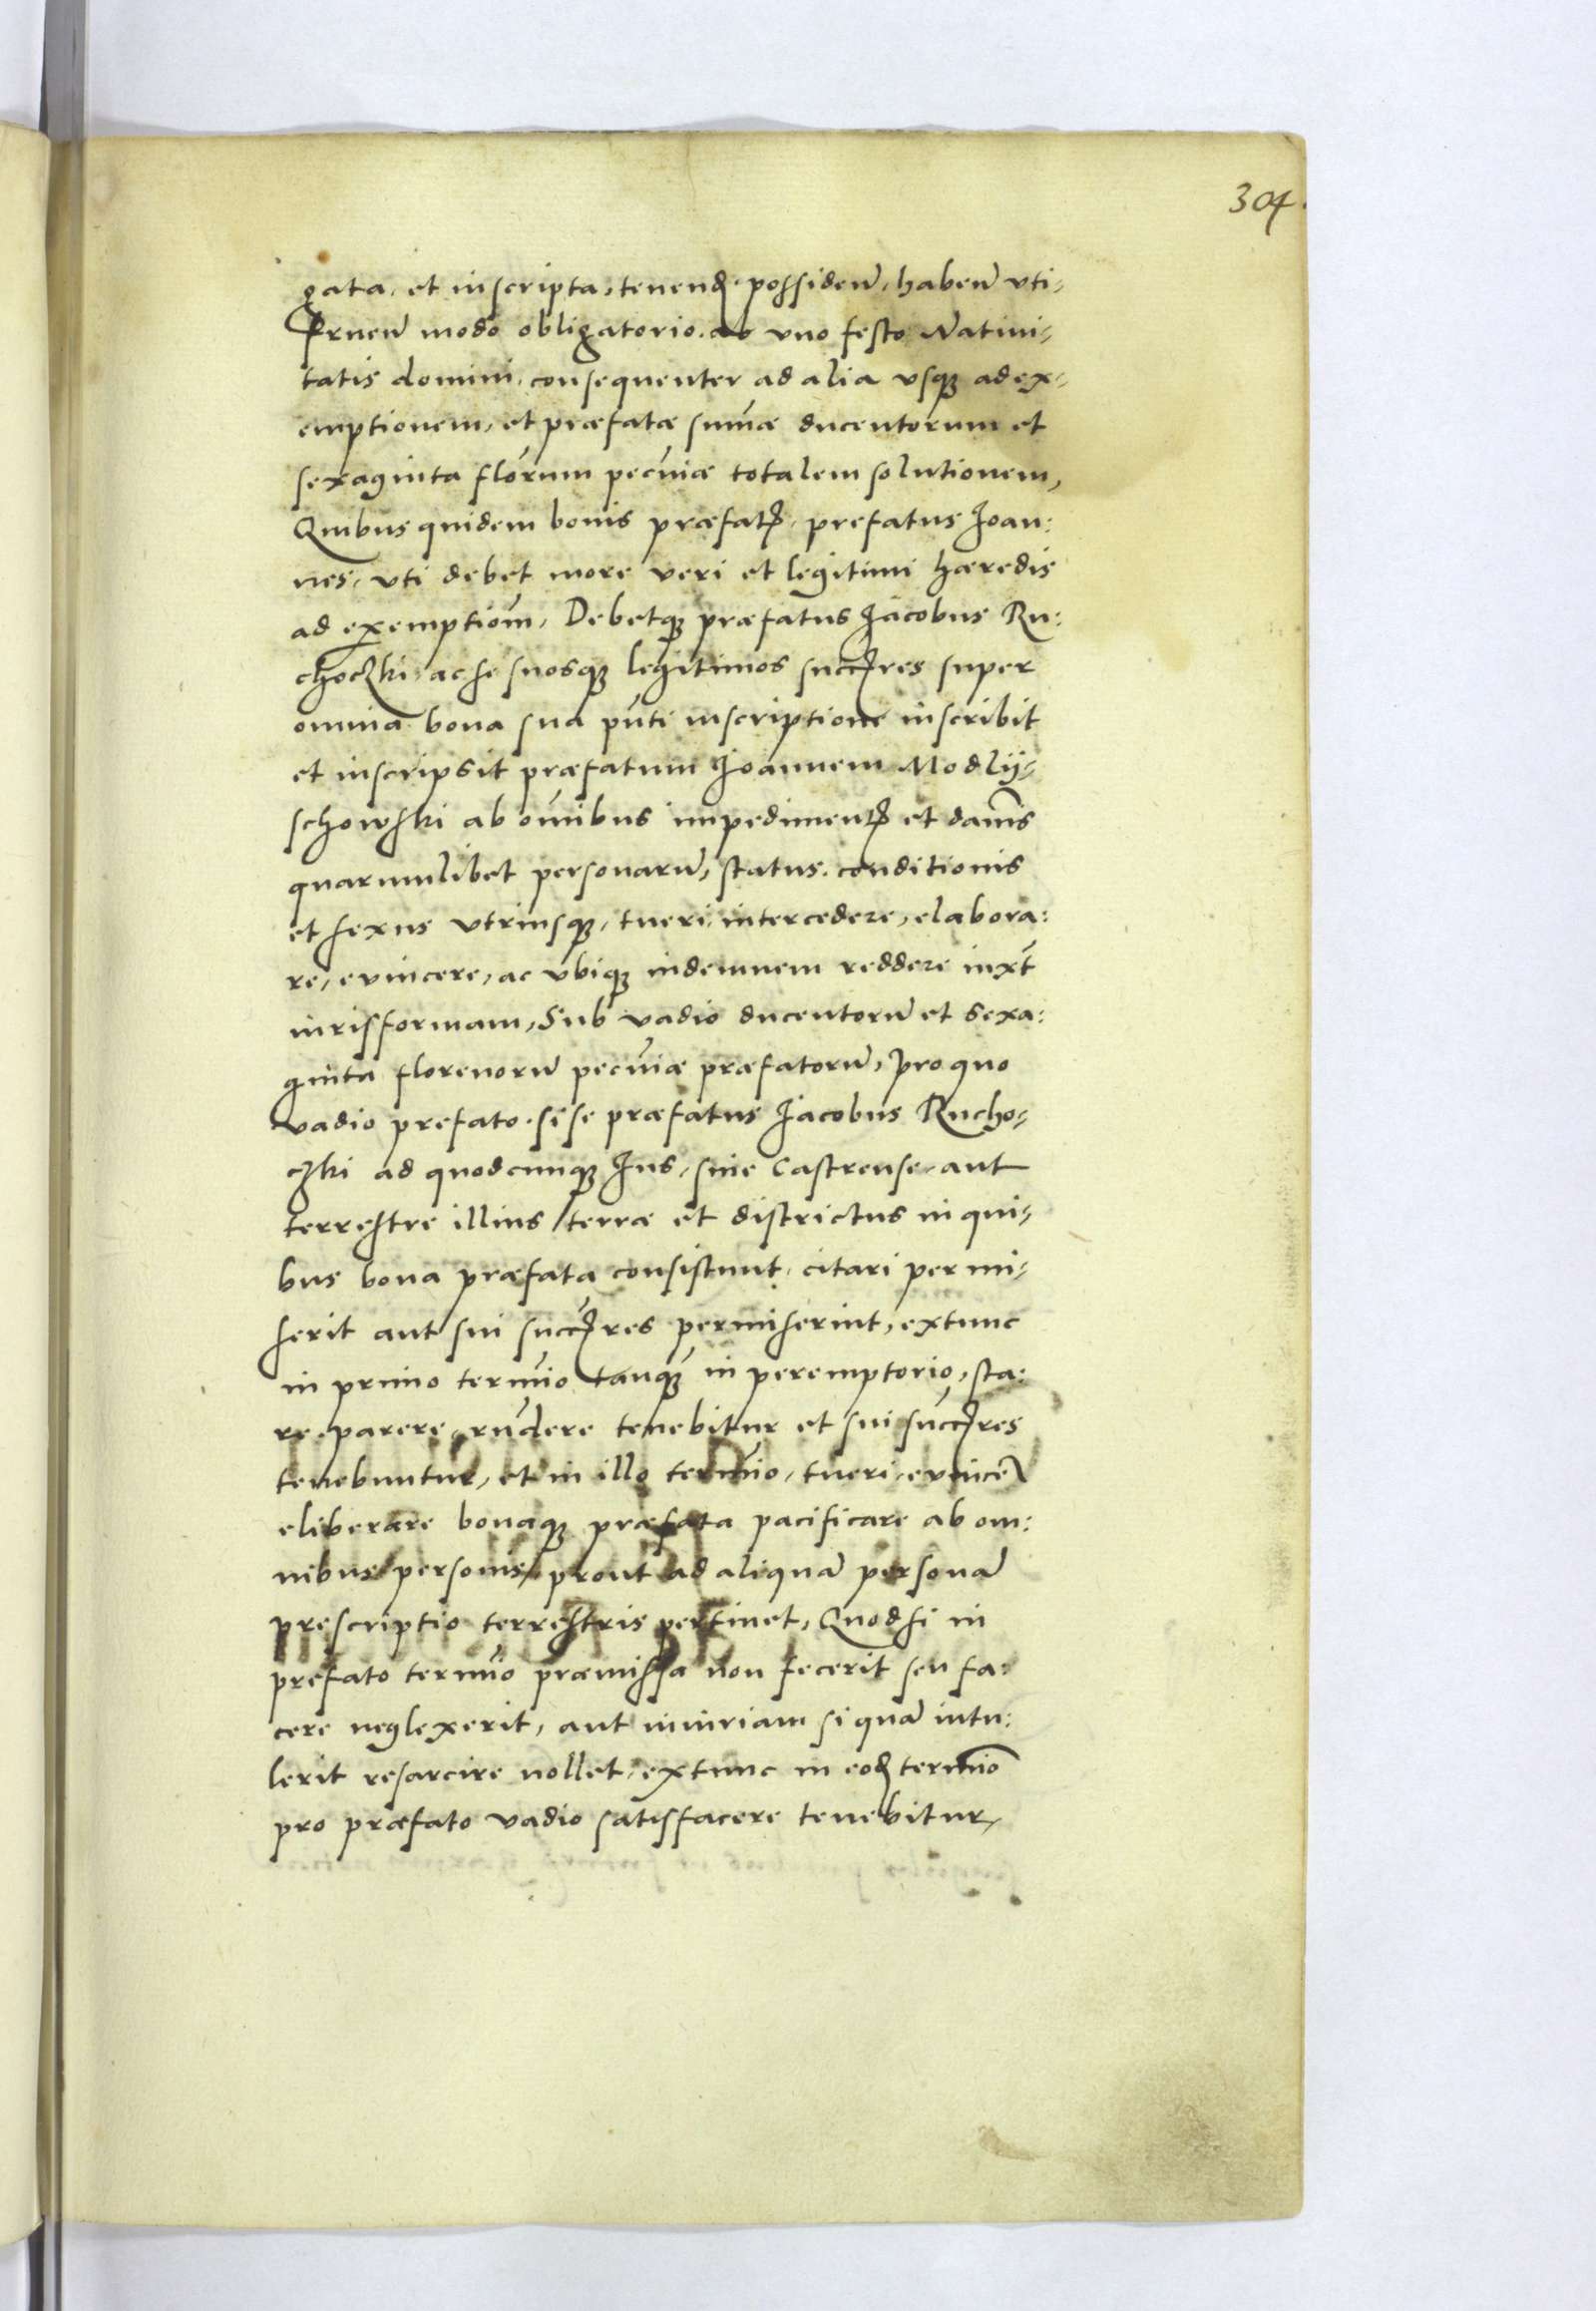 304.
gata, et inscripta, tenend. possiden̄, haben̄ vti-
fruen̄ modo obligatorio. ab vno festo Natiui-
tatis domini, consequenter ad alia vsq; ad ex-
emptionem, et præfatæ sum̄æ ducentorum et
sexaginta flōrum pecūiæ totalem solutionem,
Quibus quidem bonis præfatꝭ, prefatus Joan:
nes, vti debet more veri et legitimi hæredis
ad exemptiom̄, Debetq; præfatus Jacobus Ru:
choczki, ac se suosq; legitimos succ̄res super
omnia bona sua pn̄ti inscriptione inscribit
et inscripsit præfatum Joannem Modlij-
schowski ab om̄ibus impedimentꝭ et dam̄s
quarumlibet personarū, status, conditionis
et sexus vtriusq;, tueri, intercedere, elabora:
re, euincere, ac vbiq; indemnem reddere iuxt̄
iuris formam, Sub vadio ducentorū et sexa:
ginta florenorū pecūiæ præfatorū, Pro quo
vadio prefato. si se præfatus Jacobus Rucho-
czki ad quodcunq; Jus, siue Castrense, aut
terrestre illius terræ et districtus in qui-
bus bona præfata consistunt, citari permi-
serit aut sui succ̄res permiserint, extunc
in primo term̄io tanq̄; in peremptorio, sta:
re, parere, rn̄dere tenebitur et sui succ̄res
tenebuntur, et in illo term̄io, tueri, euincer̄
eliberare bonaq; præfata pacificare ab om:
nibus personis, prout ad aliquā personā
prescriptio terrestris pertinet, Quod si in
prefato term̄io præmissa non fecerit seu fa:
cere neglexerit, aut iniuriam si quā intu:
lerit resarcire nollet, extunc in eod. term̄io
pro præfato vadio satisfacere tenebitur,